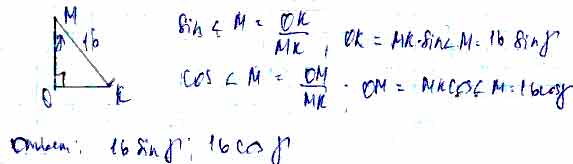 M
16
γ
O
K
sin ∠ M = OK/MK ; OK = MK·sin∠M = 16 sinγ
cos ∠ M = OM/MK ; OM = MK cos∠M = 16cosγ
Ответ: 16 sinγ; 16 cosγ